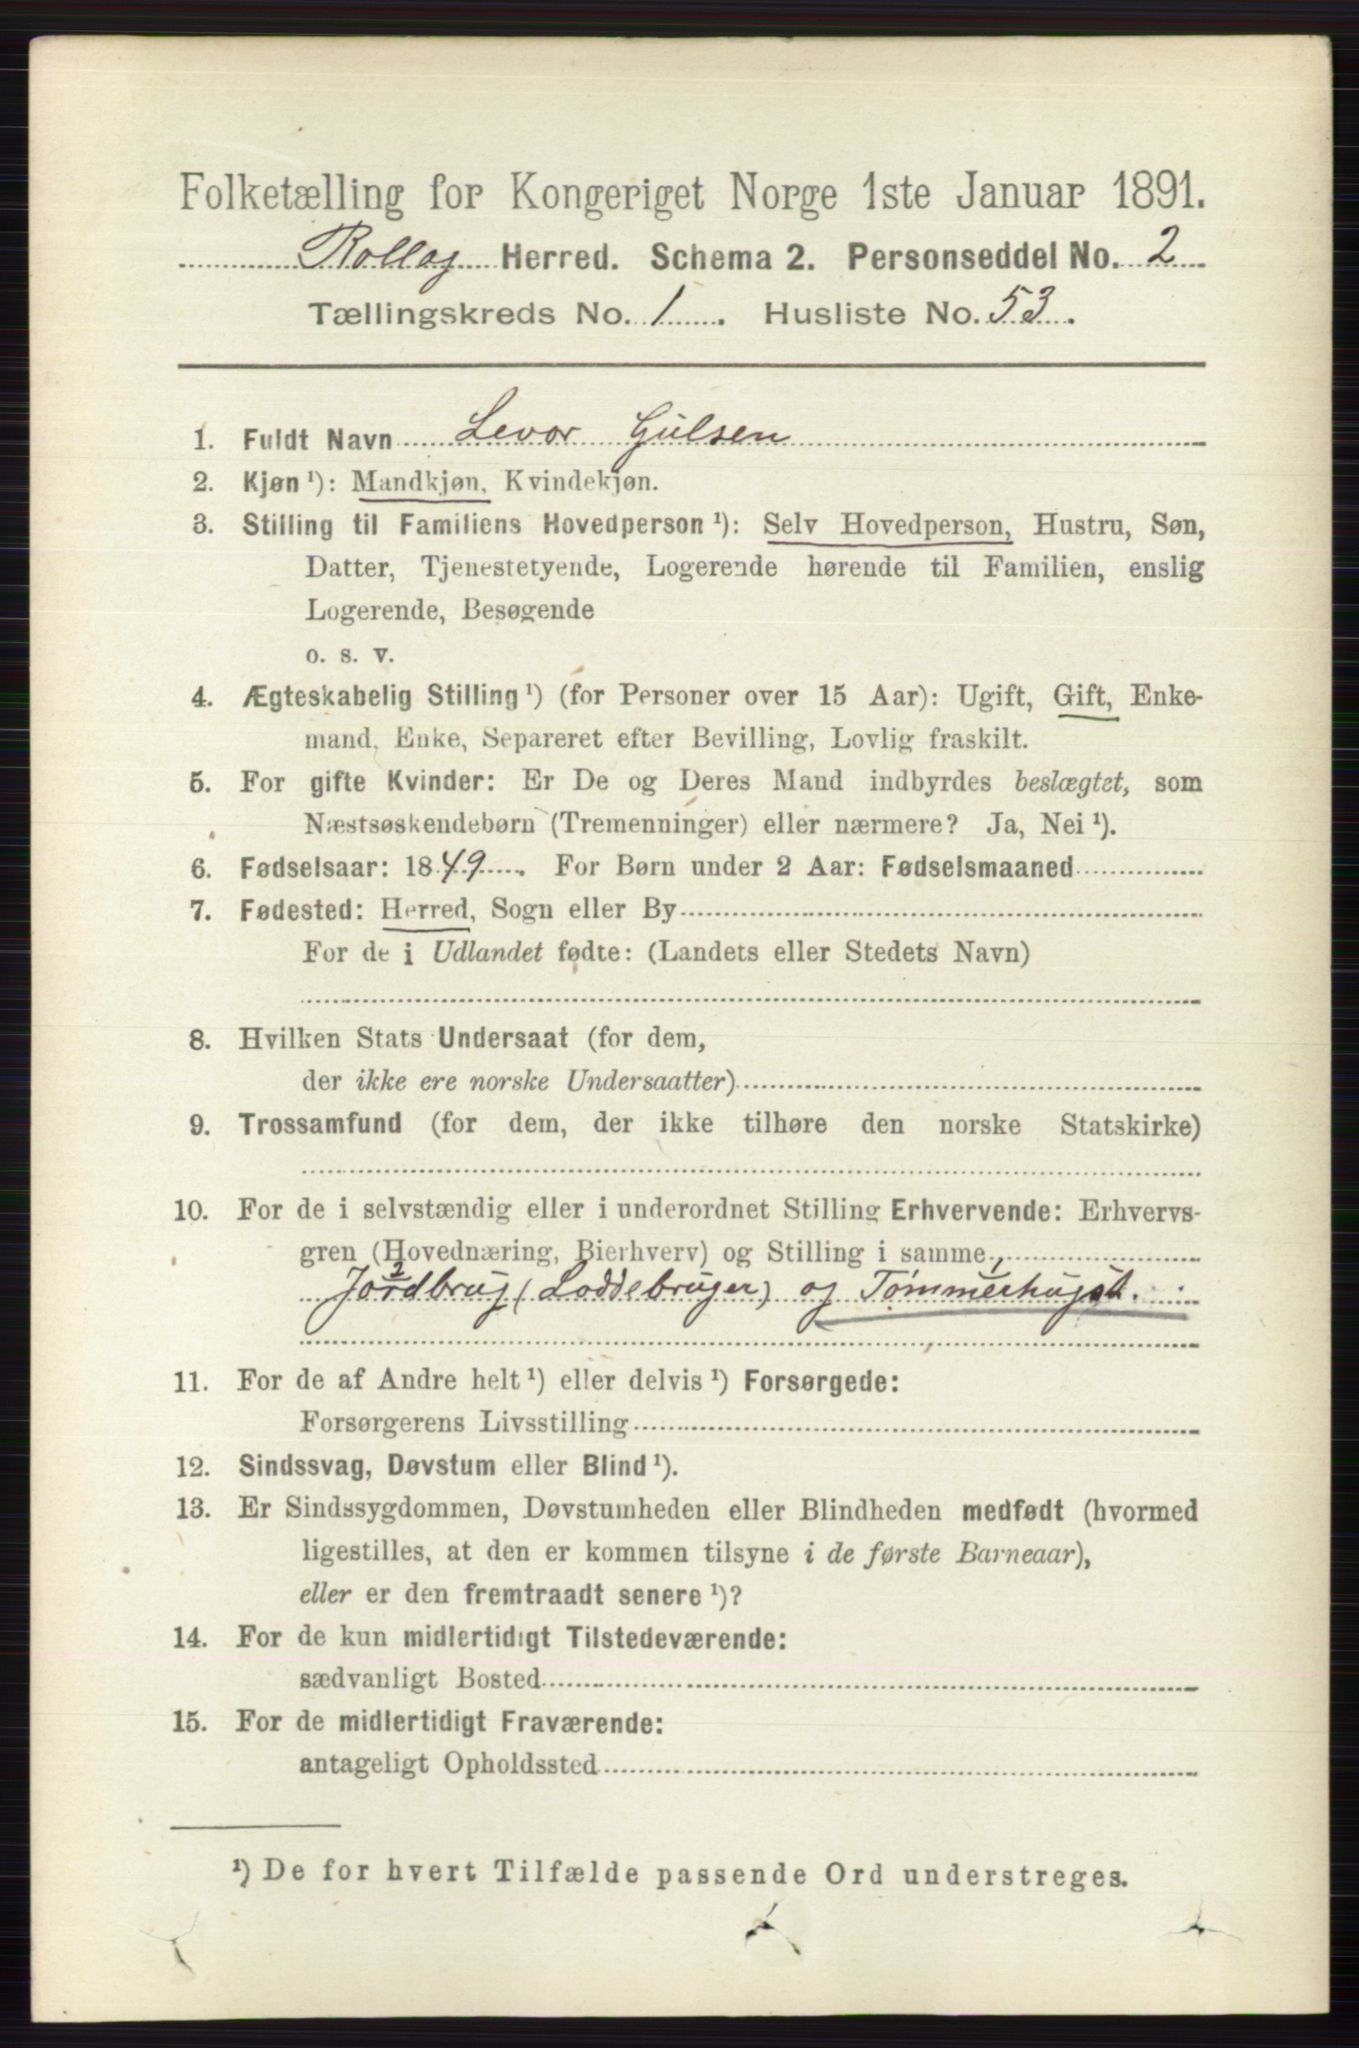 Folketælling for Kongeriget Norge 1ste Januar 1891.
Rollag Herred. Schema 2. Personseddel No. 2
Tællingskreds No. 1. Husliste No. 53.
1. Fuldt Navn Levor Gulsen
2. Kjøn ¹): Mandkjøn, Kvindekjøn.
3. Stilling til Familiens Hovedperson ¹): Selv Hovedperson, Hustru, Søn,
Datter, Tjenestetyende, Logerende hørende til Familien, enslig
Logerende, Besøgende
o. s. v.
4. Ægteskabelig Stilling ¹) (for Personer over 15 Aar): Ugift, Gift, Enke-
mand, Enke, Separeret efter Bevilling, Lovlig fraskilt.
5. For gifte Kvinder: Er De og Deres Mand indbyrdes beslægtet, som
Næstsøskendebørn (Tremenninger) eller nærmere? Ja, Nei ¹).
6. Fødselsaar: 1849. For Børn under 2 Aar: Fødselsmaaned
7. Fødested: Herred, Sogn eller By
For de i Udlandet fødte: (Landets eller Stedets Navn)
8. Hvilken Stats Undersaat (for dem,
der ikke ere norske Undersaatter)
9. Trossamfund (for dem, der ikke tilhøre den norske Statskirke)
10. For de i selvstændig eller i underordnet Stilling Erhvervende: Erhvervs-
gren (Hovednæring, Bierhverv) og Stilling i samme
2 1
Jordbrug (Loddebruger) og Tømmerhugst.
11. For de af Andre helt ¹) eller delvis ¹) Forsørgede:
Forsørgerens Livsstilling
12. Sindssvag, Døvstum eller Blind ¹).
13. Er Sindssygdommen, Døvstumheden eller Blindheden medfødt (hvormed
ligestilles, at den er kommen tilsyne i de første Barneaar),
eller er den fremtraadt senere ¹)?
14. For de kun midlertidigt Tilstedeværende:
sædvanligt Bosted
15. For de midlertidigt Fraværende:
antageligt Opholdssted
¹) De for hvert Tilfælde passende Ord understreges.